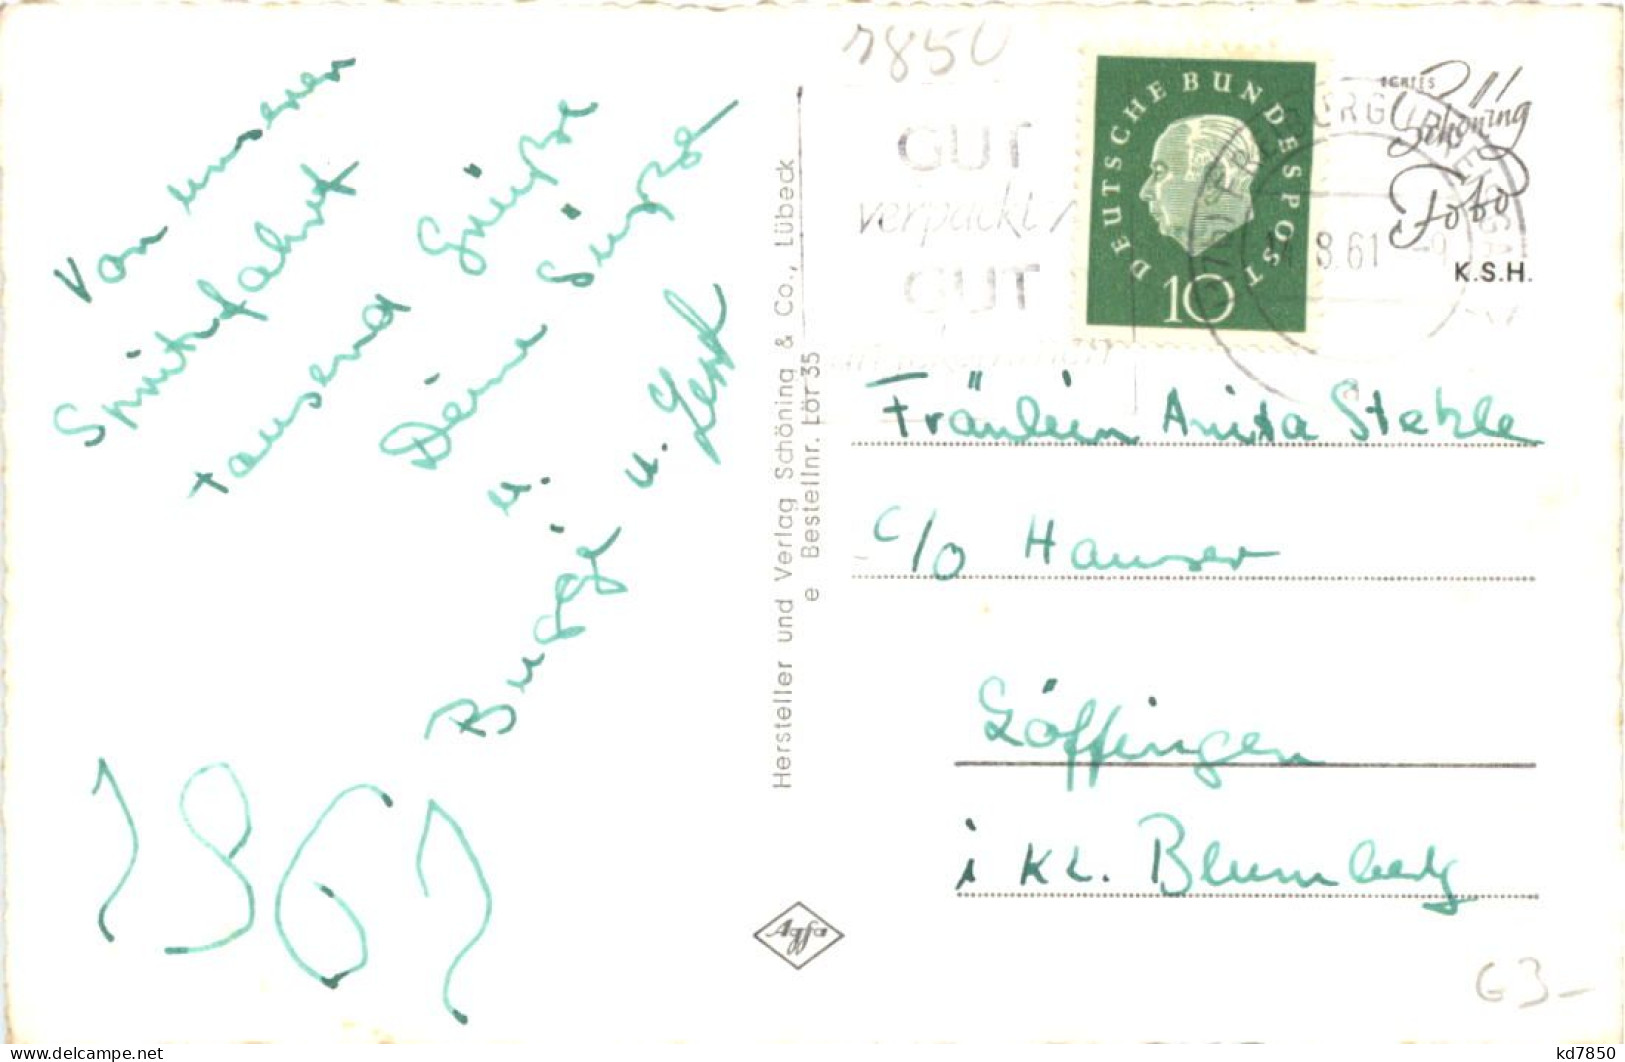 Von unserer
Spritzfahrt
tausend Grüße
Deine
u.
u.
1961
Hersteller und Verlag Schöning & Co., Lübeck
e Bestellnr. Lör 35
7850
GUT
verpackt
GUT
DEUTSCHE BUNDESPOST
10
8.61
ECHTES
Schöning
Foto
K.S.H.
Fräulein Anita Stekle
c/o Hauser
Löffingen
i KL. Blumberg
Agfa
G3-
kd7850